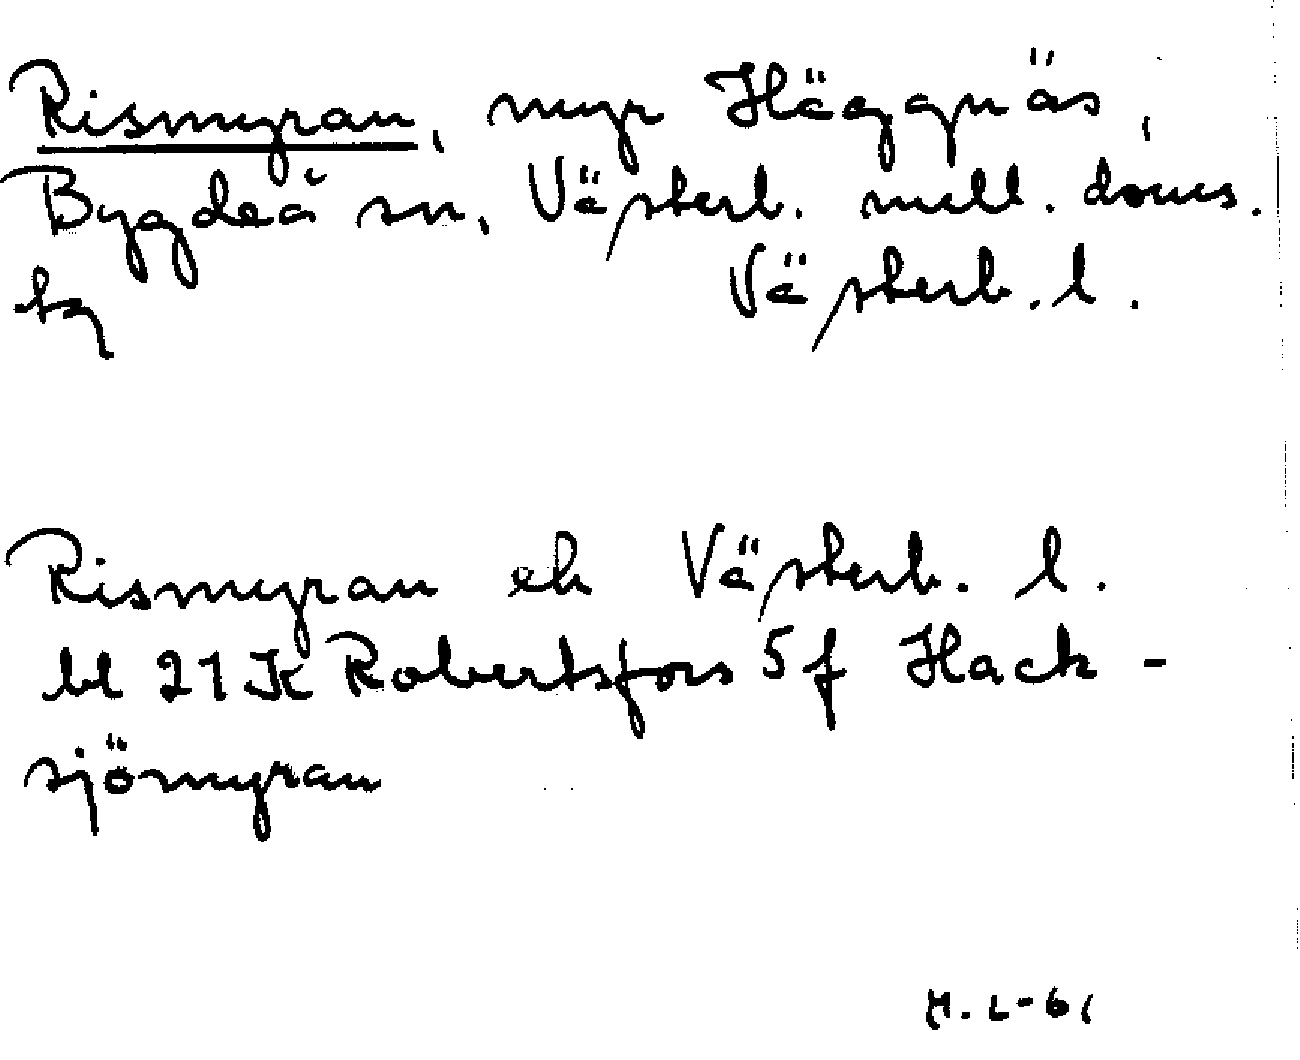 Rismyran, myr Häggnäs,
Bygdeå sn, Västerb. mell. doms.
tg Västerb. l.
Rismyran ek Västerb. l.
bl 21K Robertsfors 5f Hack-
sjömyran
H.L-61